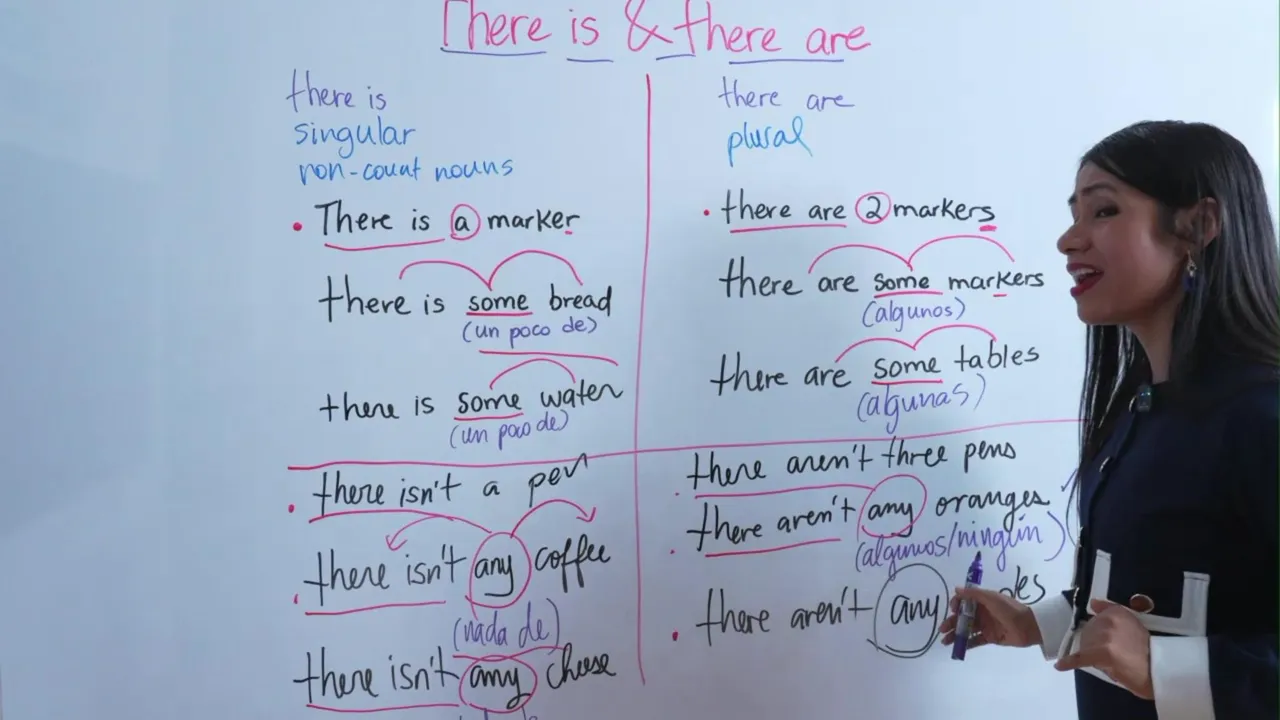 There is & there are
there is
singular
non-count nouns
• There is a marker
there is some bread
(un poco de)
there is some water
(un poco de)
there are
plural
• there are 2 markers
there are some markers
(algunos)
there are some tables
(algunas)
• there isn't a pen
• there isn't any coffee
(nada de)
there isn't any cheese
there aren't three pens
• there aren't any oranges
(algunos/ningún)
• there aren't any